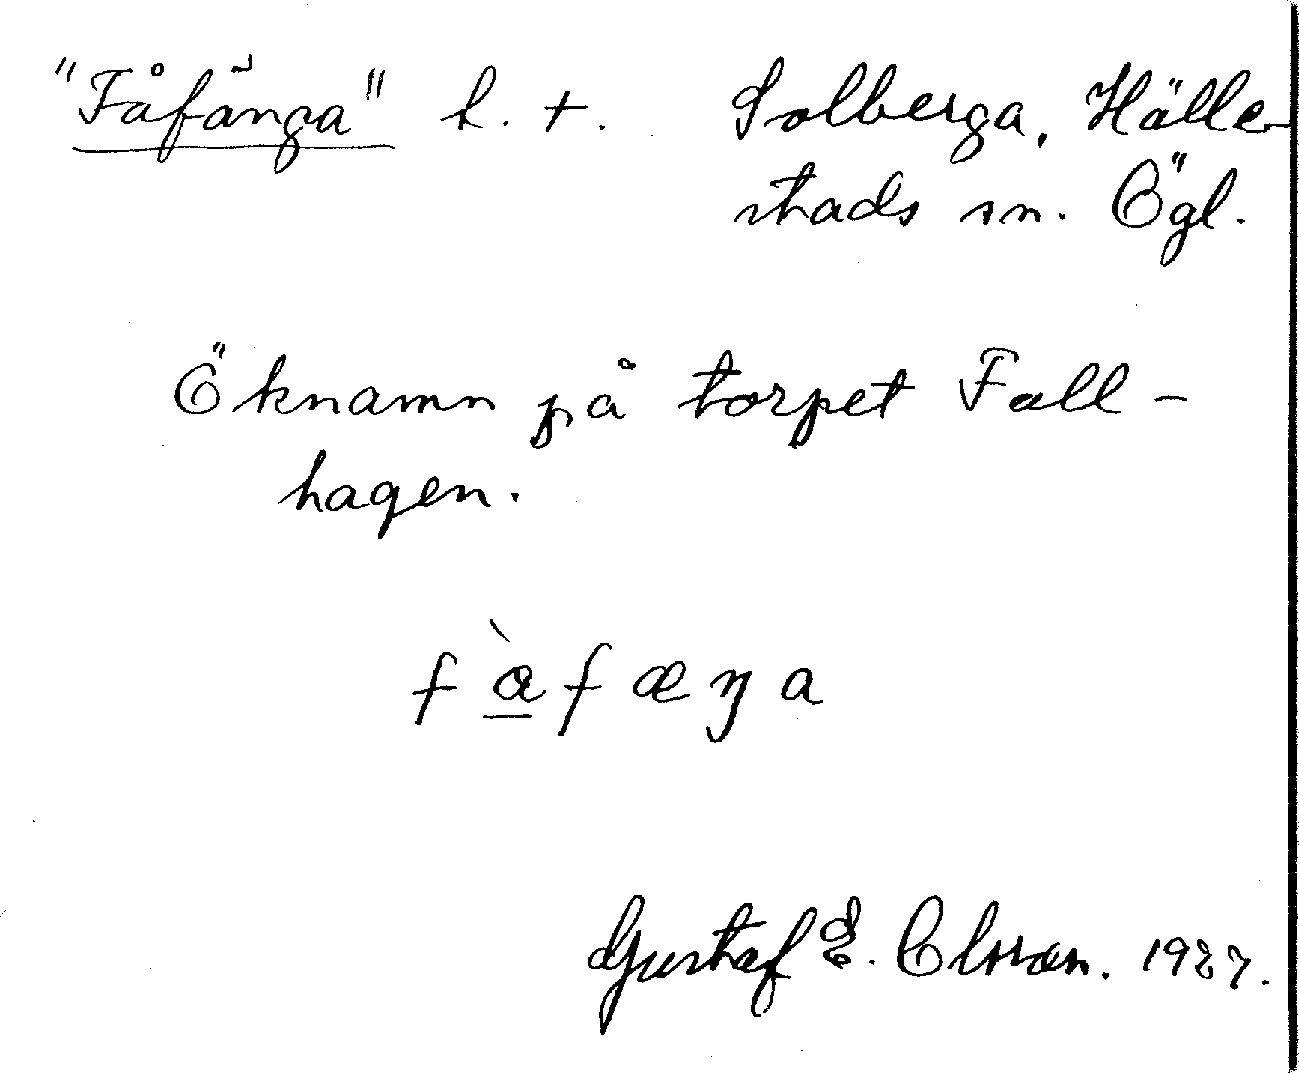 "Fåfänga" h. +. Solberga, Hälle-
stads sn. Ögl.
Öknamn på torpet Fall-
hagen.
fàfæŋa
Gustaf E. Olsson. 1927.